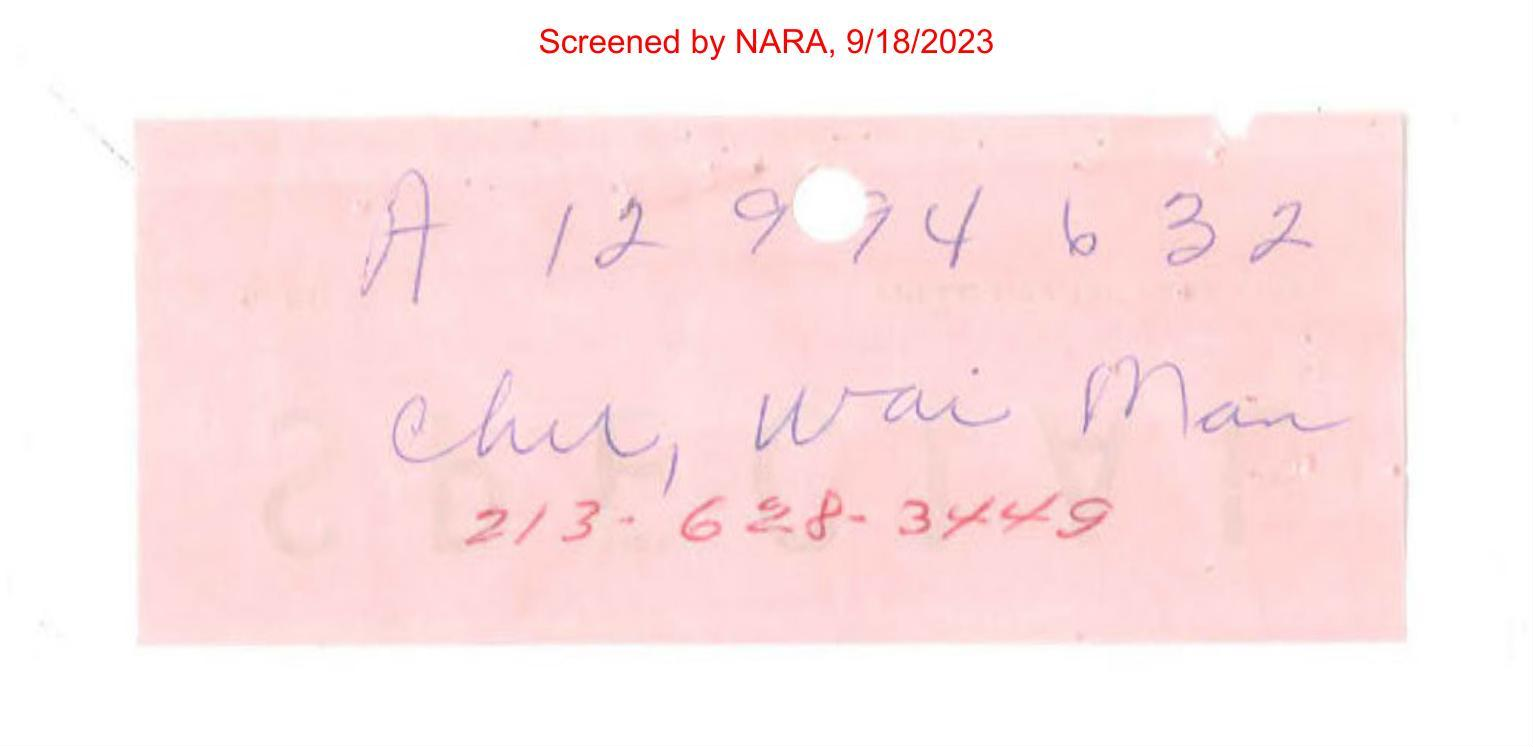 Screened by NARA, 9/18/2023
A 12 994 632
Chu, Wai Man
213-628-3449